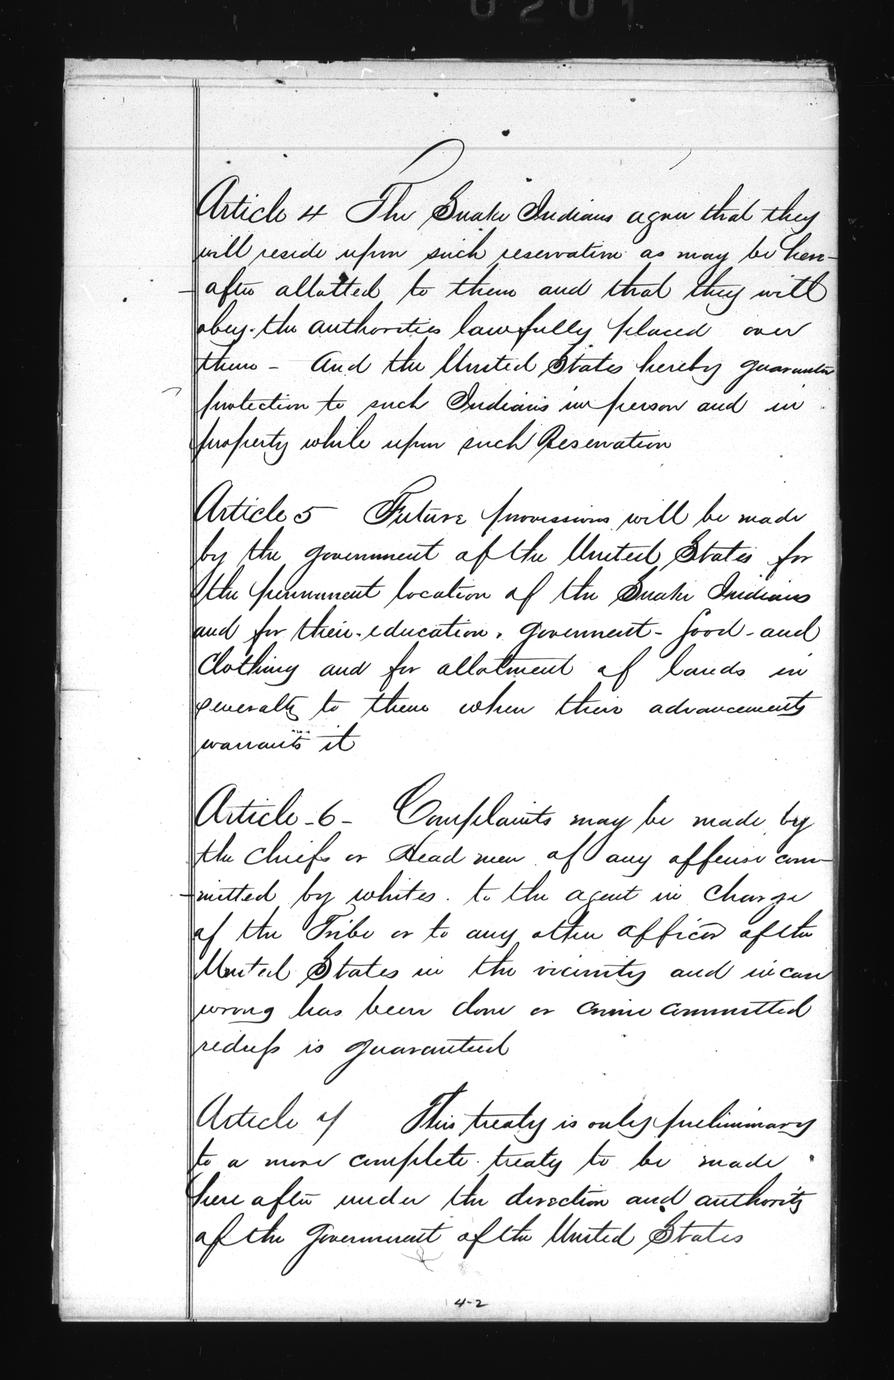 0201
Article 4 The Snake Indians agree that they
will reside upon such reservation as may be here-
after allotted to them and that they will
obey the authorities lawfully placed over
them - And the United States hereby guarantee
protection to such Indians in person and in
property while upon such Reservation
Article 5 Future provissions will be made
by the government of the United States for
the permanent location of the Snake Indians
and for their education, goverment - food - and
Clothing and for allotment of lands in
severalty to them when their advancements
warrants it
Article - 6 - Complaints may be made by
the Chiefs or Head men of any offense com-
mitted by whites to the agent in charge
of the Tribe or to any other officer of the
United States in the vicinity and in case
wrong has been done or crime committed
redress is guaranteed
Article 7 This treaty is only preliminary
to a more complete treaty to be made
here after under the direction and authority
of the Government of the United States
4-2